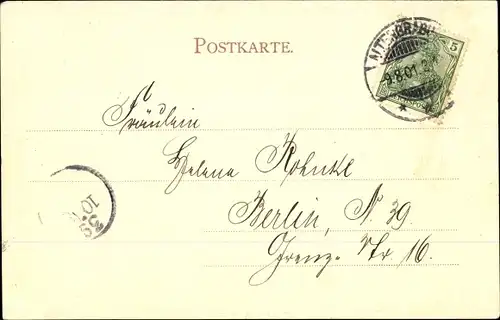 POSTKARTE.
5
9.8.01.
Fräulein
Helena Rohnke
Berlin, N 39.
Grenz- Str 16.